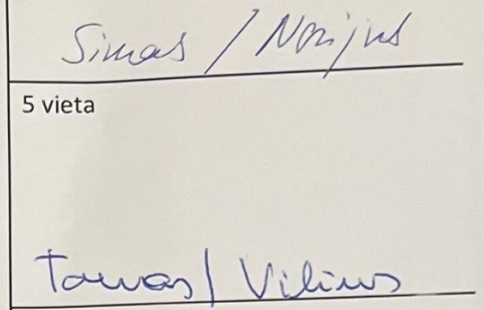 Simas / Norijus
5 vieta
Tomas / Vilius